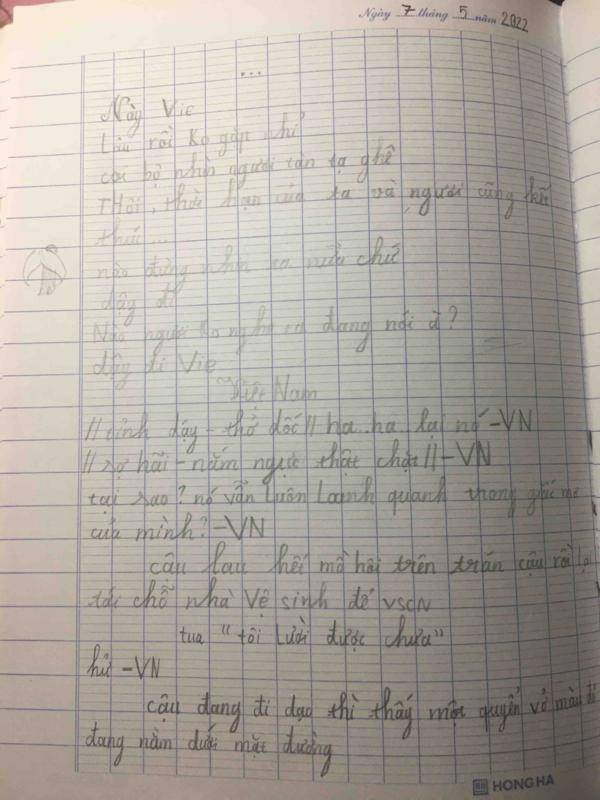 Ngày 7 tháng 5 năm 2022
...
Này Vie
Lâu rồi ko gặp nhỉ
coi bộ nhìn ngươi tàn tạ ghê
THôi, thời hạn của ta và ngươi cũng kết
thúc...
nào đừng nhìn ta nữa chứ
dậy đi
Nào ngươi ko nghe ta đang nói à?
dậy đi Vie
Việt Nam
//tỉnh dậy - thở dốc// ha..ha. lại nó -VN
//sợ hãi - nắm ngực thật chặt// -VN
tại sao? nó vẫn luôn Loanh quanh trong giấc mơ
của mình? -VN
cậu lau hết mồ hôi trên trán cậu rồi lại
tới chỗ nhà Vệ sinh để VSCN
tua "tôi Lười được chưa"
hử -VN
cậu đang đi dạo thì thấy một quyển vở màu
đang nằm dưới mặt đường
HONG HA